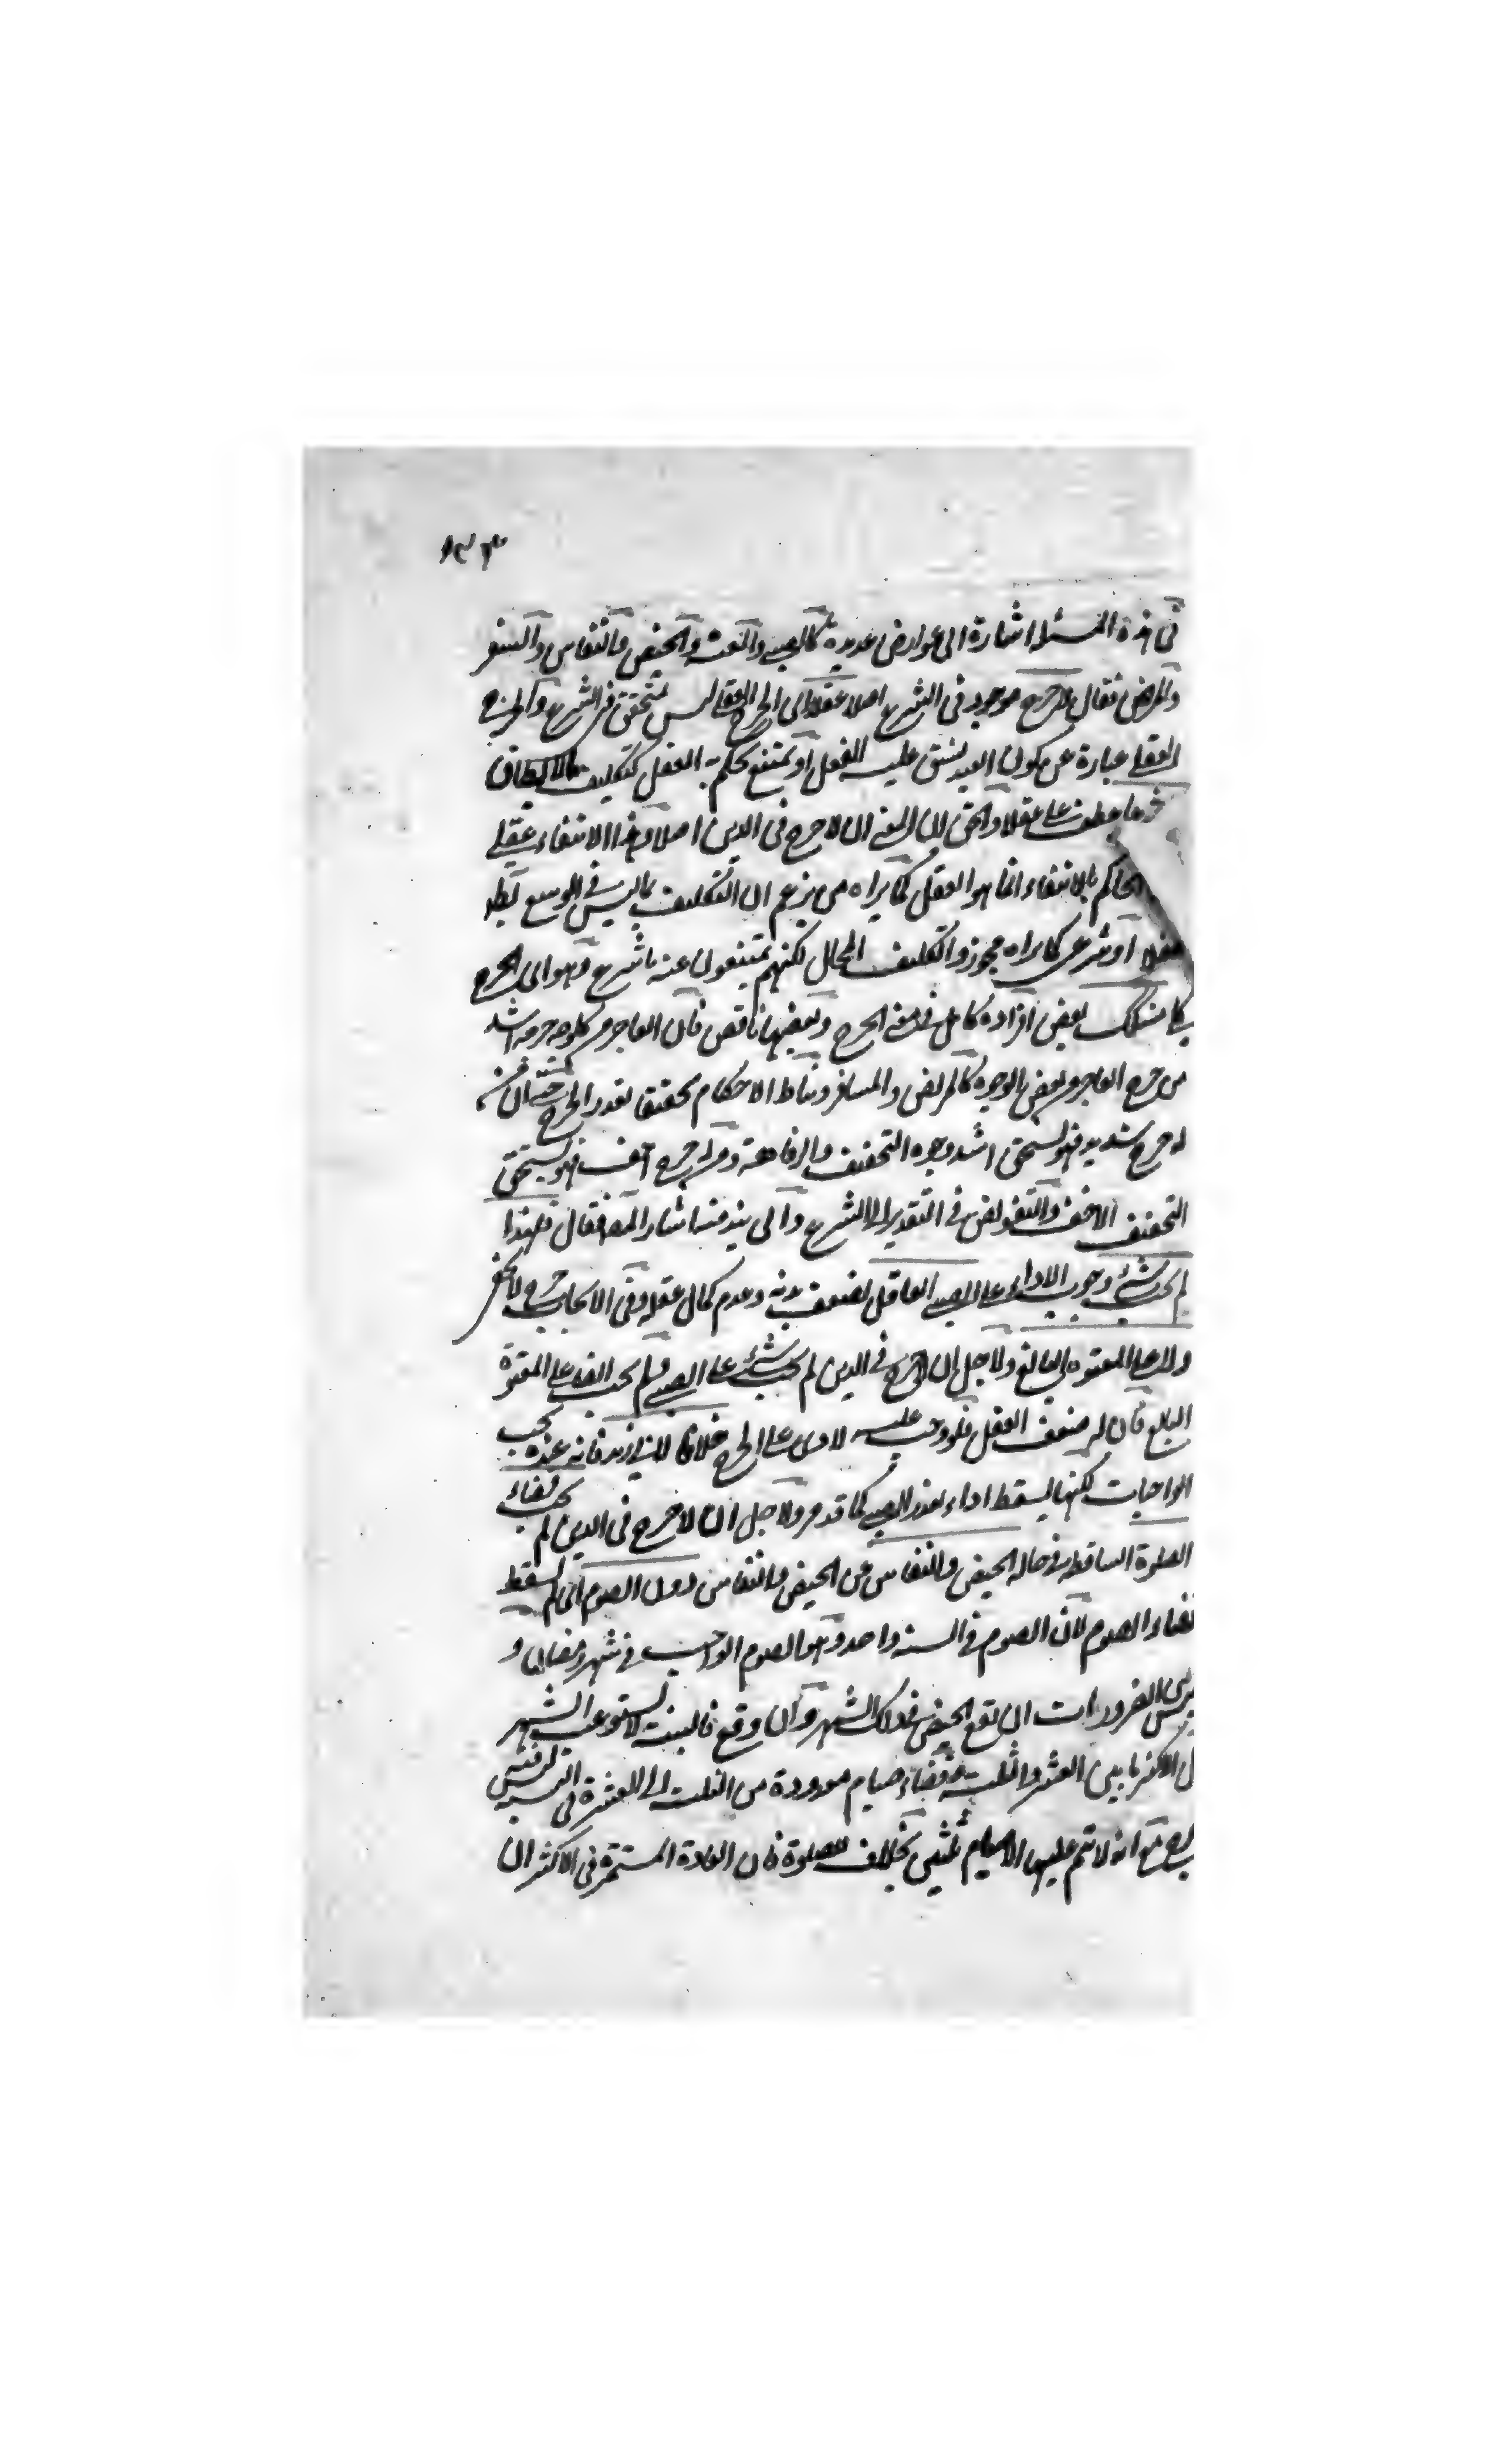 في هذه المسئلة اشارة الى عوارض عديدة كالصبي والعته والحيض والنفاس والسفر
والمرض فقال لا حرج موجود في الشرع اصلا عقلا اي الحرج العقلي ليس بمتحقق في الشرع والحرج
العقلي عبارة عن كون العبد يشق عليه الفعل او يمتنع بحكم العقل كتكليف ما لا يطاق
عطف على عقلا والحق ان المعنى ان لا حرج في الدين اصلا وهذا الانتفاء عقلي
الحاكم بالانتفاء انما هو العقل كما يراه من يزعم ان التكليف بما ليس في الوسع
عقلا او شرعي كما يراه مجوزوا التكليف المحال لكنهم يمتنعون عنه بالشرع وهو اي الحرج
كلي مشكك بعض افراده كامل في معنى الحرج وبعضها ناقص فان العاجز من كل وجه حرجه اشد
من حرج العاجز من بعض الوجوه كالمريض والمسافر ومناط الاحكام يتحقق بقدر الحرج
له حرج شديد فهو يستحق اشد وجوه التخفيف والرفاهة ومن له حرج اخف فهو يستحق
التخفيف الاخف والتفويض في التقدير الى الشرع والى نبذ منها اشار المصنف فقال فلهذا
لم يجب شيء وجوب الاداء على الصبي العاقل لضعف بدنه وعدم كمال عقله وفي الايجاب حرج لا يخفى
ولا على المعتوه البالغ ولاجل ان لا حرج في الدين لم يجب شيء على الصبي ولم يجب ايضا على المعتوه
البالغ فان له ضعف العقل فلو وجب عليه لادى على الحرج خلافا لابي زيد فانه عنده يجب
الواجبات لكنها يسقط اداء بعذر الصبي كما قد مر ولاجل ان لا حرج في الدين لم يجب قضاء
الصلوة الساقطة في حالة الحيض والنفاس عن الحيض والنفاس دون الصوم اي لم يسقط
قضاء الصوم لان الصوم في السنة واحد وهو الصوم الواجب في شهر رمضان و
ليس من الضرورات ان يقع الحيض في ذلك الشهر وان وقع فالبتة لا يستوعب الشهر
الاكثر ما بين العشر والثلث فقضاء صيام معدودة من الثلث الى العشرة في السنة ليس فيه
حرج مع انه لا يتم عليها الاسلام بخلاف الصلوة فان العادة المستمرة في الاكثر ان